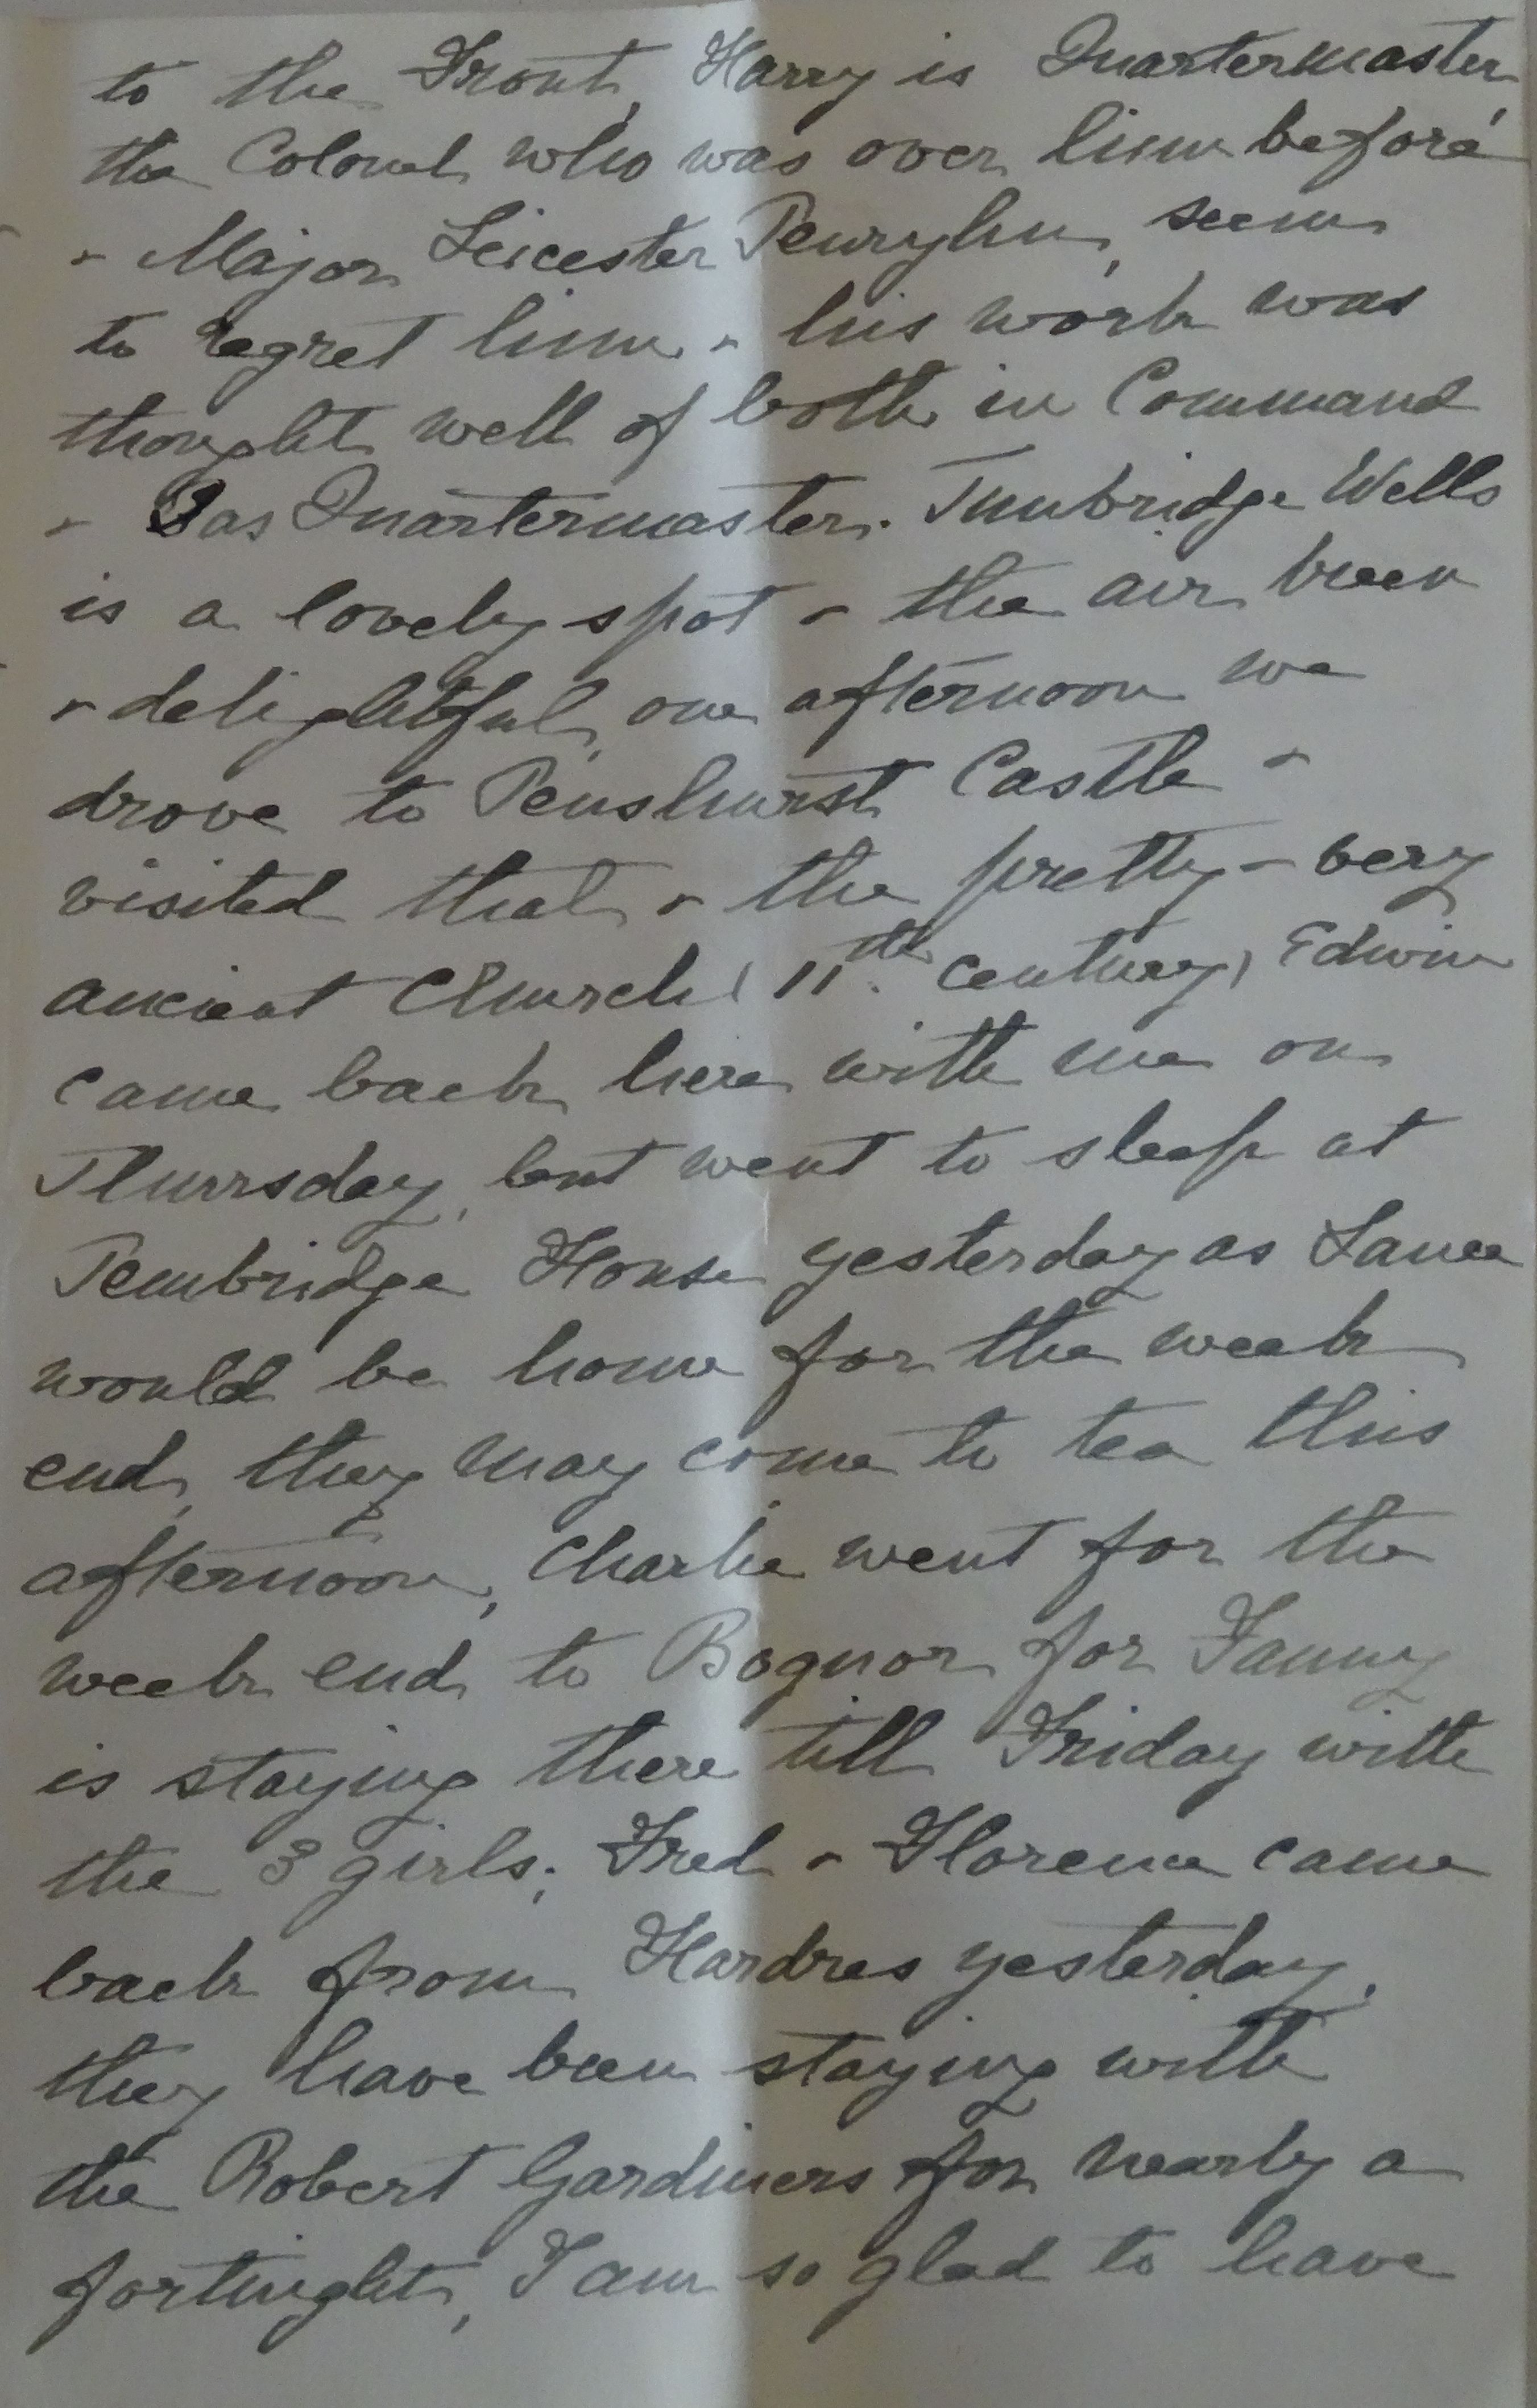 to the Front, Harry is Quartermaster,
the Colonel who was over him before
& Major Leicester Penrylm, seem
to regret him & his work was
thought well of both in Command
& as Quartermaster. Tunbridge Wells
is a lovely spot & the air keen
& delightful, one afternoon we
drove to Penshurst Castle &
visited that & the pretty & very
ancient Church (11th. century) Edwin
came back here with me on
Thursday, but went to sleep at
Pembridge House yesterday as Lance
would be home for the week
end, they may come to tea this
afternoon, Charlie went for the
week end to Bognor for Fanny
is staying there till Friday with
the 3 girls; Fred & Florence came
back from Hardres yesterday,
they have been staying with
the Robert Gardiners for nearly a
fortnight, I am so glad to have